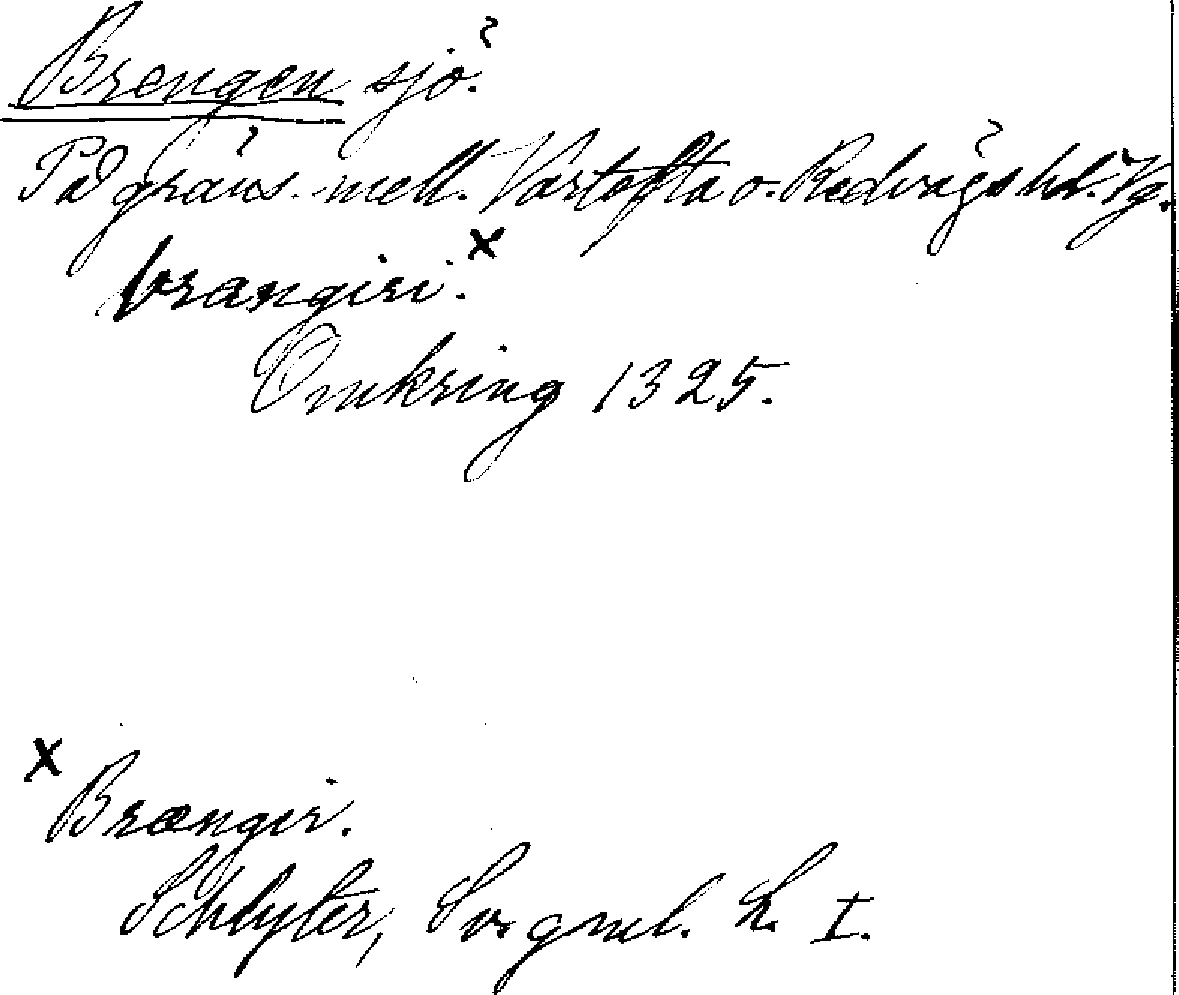 Brengen sjö.
På gräns. mell. Vartofta o. Redvägs hd. Vg.
brangiri. x
Omkring 1325.
x Brængir.
Schlyter, Sv. gml. L. I.